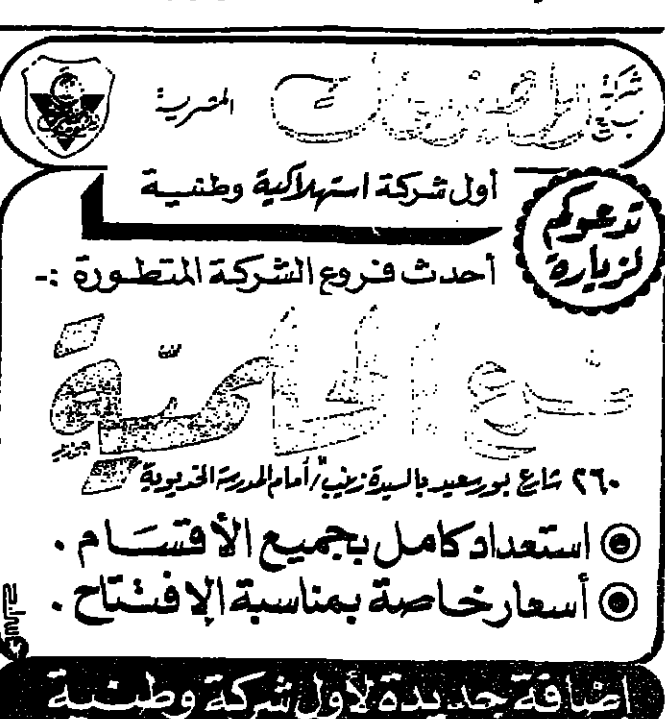 شركة بيع المصنوعات المصرية
أول شركة استهلاكية وطنية
تدعوكم لزيارة
أحدث فروع الشركة المتطورة :-
فرع الحلمية
٢٦٠ شارع بورسعيد بالسيدة زينب / أمام المدرسة الخديوية
استعداد كامل بجميع الأقسام .
أسعار خاصة بمناسبة الإفتتاح .
إضافة جديدة لأول شركة وطنية